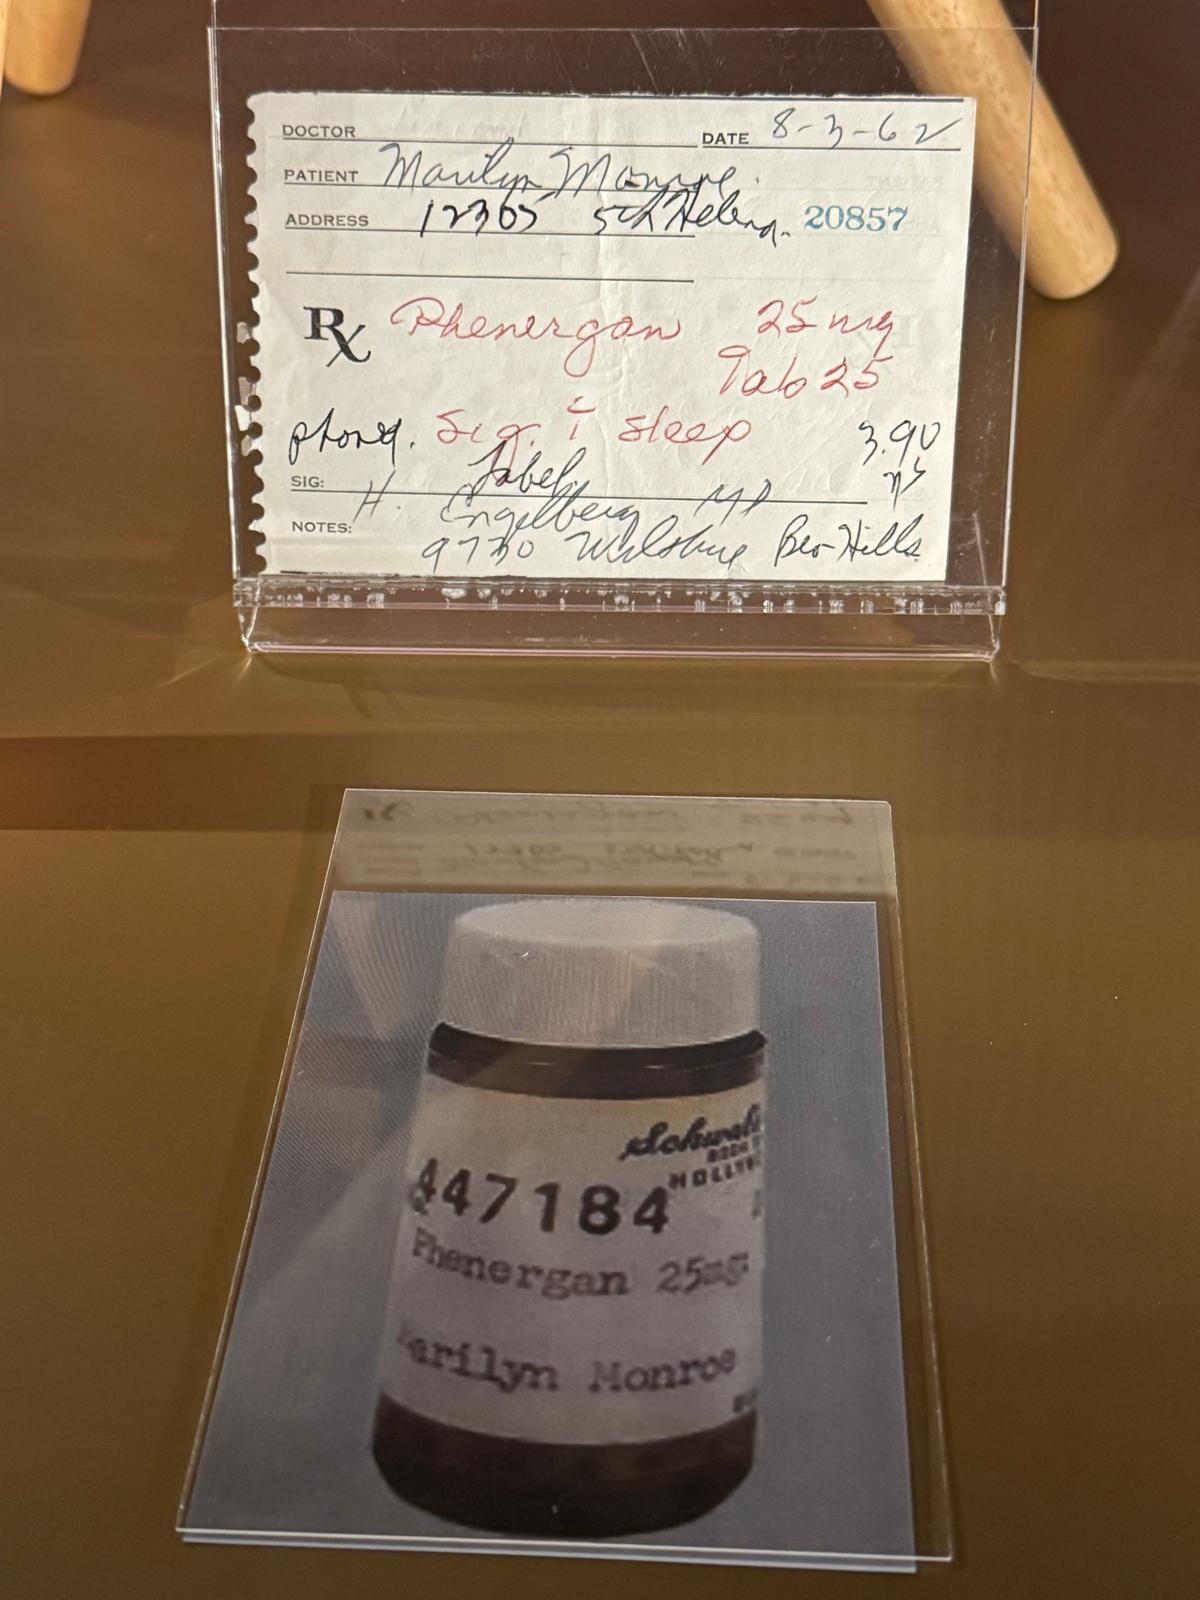 DOCTOR DATE 8-3-62
PATIENT Marilyn Monroe.
ADDRESS 12305 5th Helena. 20857
Rx Phenergan 25 mg
Tab 25
phoned. Sig. i sleep 3.90
SIG: Label. ns
NOTES: H. Engelberg MD
9730 Wilshire Bev Hills
Schwab
HOLLYW
447184
Phenergan 25mg
arilyn Monroe